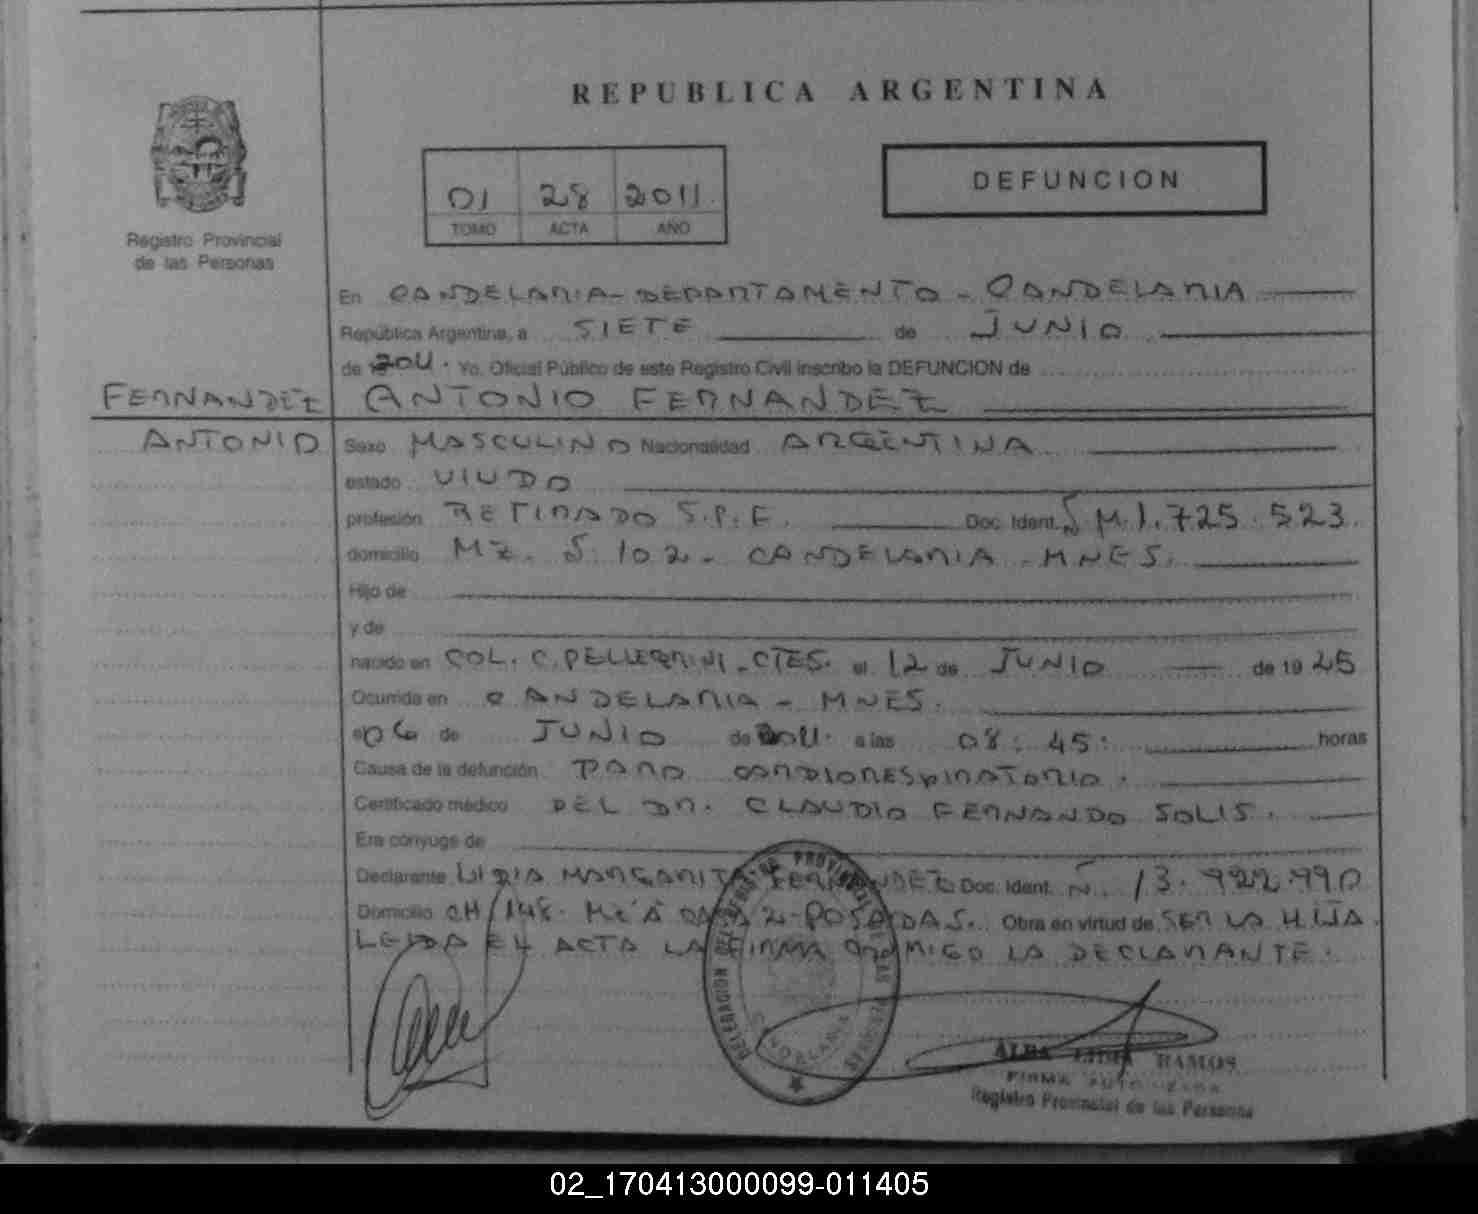 REPUBLICA ARGENTINA
Registro Provincial
de las Personas
01 28 2011
TOMO ACTA AÑO
DEFUNCION
En CANDELARIA - DEPARTAMENTO - CANDELARIA
República Argentina, a SIETE de JUNIO
de 2011. Yo. Oficial Público de este Registro Civil inscribo la DEFUNCION de
FERNANDEZ ANTONIO FERNANDEZ
ANTONIO Sexo MASCULINO Nacionalidad ARGENTINA
estado VIUDO
profesión RETIRADO S.P.F. Doc. Ident. M. 1.725.523.
domicilio MZ. S. 102 - CANDELARIA - MNES.
Hijo de
y de
nacido en COL. C. PELLEGRINI - CTES. el 12 de JUNIO de 19 25
Ocurrida en CANDELARIA - MNES.
el 06 de JUNIO de 2011. a las 08:45: horas
Causa de la defunción PARO CARDIORESPIRATORIO.
Certificado médico DEL DR. CLAUDIO FERNANDO SOLIS.
Era cónyuge de
Declarante LIDIA MARGARITA FERNANDEZ Doc. Ident. N. 13.922.990
Domicilio CH/148. MZ A CASA 2 - POSADAS. Obra en virtud de SER LA HIJA.
LEIDA EL ACTA LA FIRMA CONMIGO LA DECLARANTE.
DELEGACION DEL REGISTRO PROVINCIAL DE LAS PERSONAS
CANDELARIA
ALBA RAMOS
FIRMA AUTORIZADA
Registro Provincial de las Personas
02_170413000099-011405